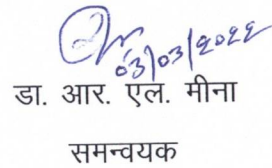 03/03/2022
डा. आर. एल. मीना
समन्वयक